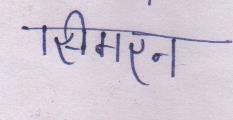 सिमरन